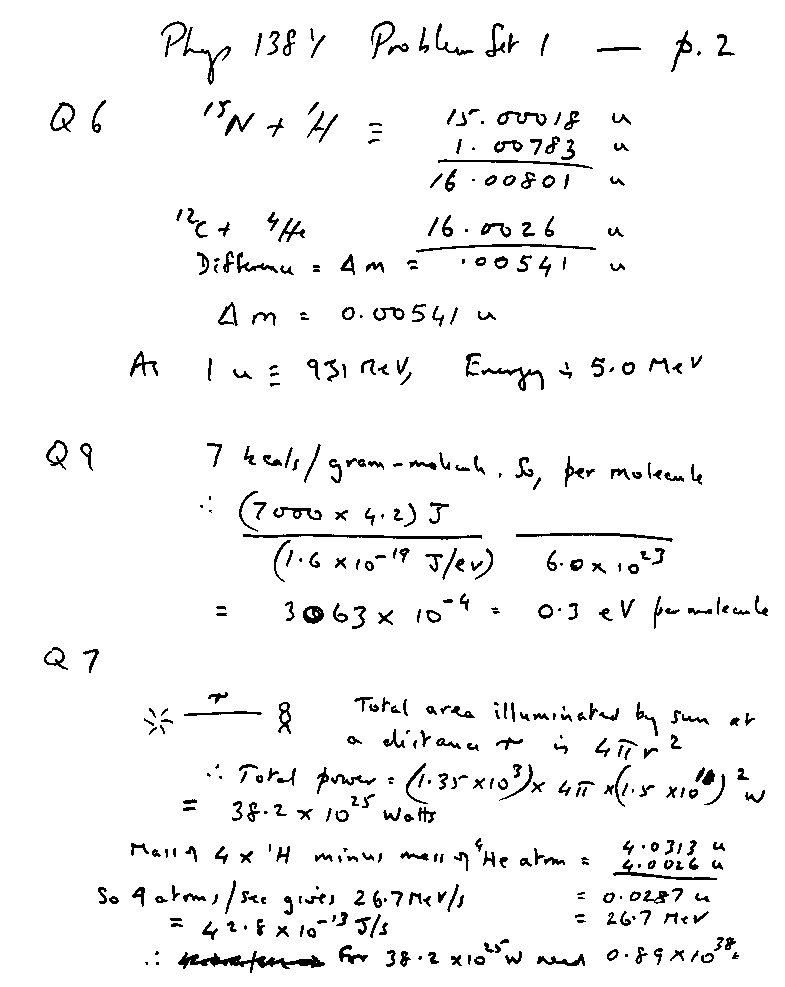 Phys 138Y Problem Set 1 — p. 2
Q 6 ¹⁵N + ¹H ≡ 15.00018 u
1.00783 u
16.00801 u
¹²C + ⁴He 16.0026 u
Difference = Δm = .00541 u
Δm = 0.00541 u
As 1 u ≡ 931 MeV, Energy ≐ 5.0 MeV
Q 9 7 kcals/gram-molecule. So, per molecule
∴ (7000 x 4.2) J
(1.6 x 10⁻¹⁹ J/ev) 6.0 x 10²³
= 3063 x 10⁻⁴ = 0.3 eV per molecule
Q 7
r Total area illuminated by sun at
a distance r is 4πr²
∴ Total power = (1.35 x10³) x 4π x (1.5 x10¹¹)² W
= 38.2 x 10²⁵ Watts
Mass of 4 x ¹H minus mass of ⁴He atom = 4.0313 u
4.0026 u
So 4 atoms/sec gives 26.7 MeV/s = 0.0287 u
= 42.8 x 10⁻¹³ J/s = 26.7 MeV
∴ For 38.2 x10²⁵ W need 0.89 x 10³⁸